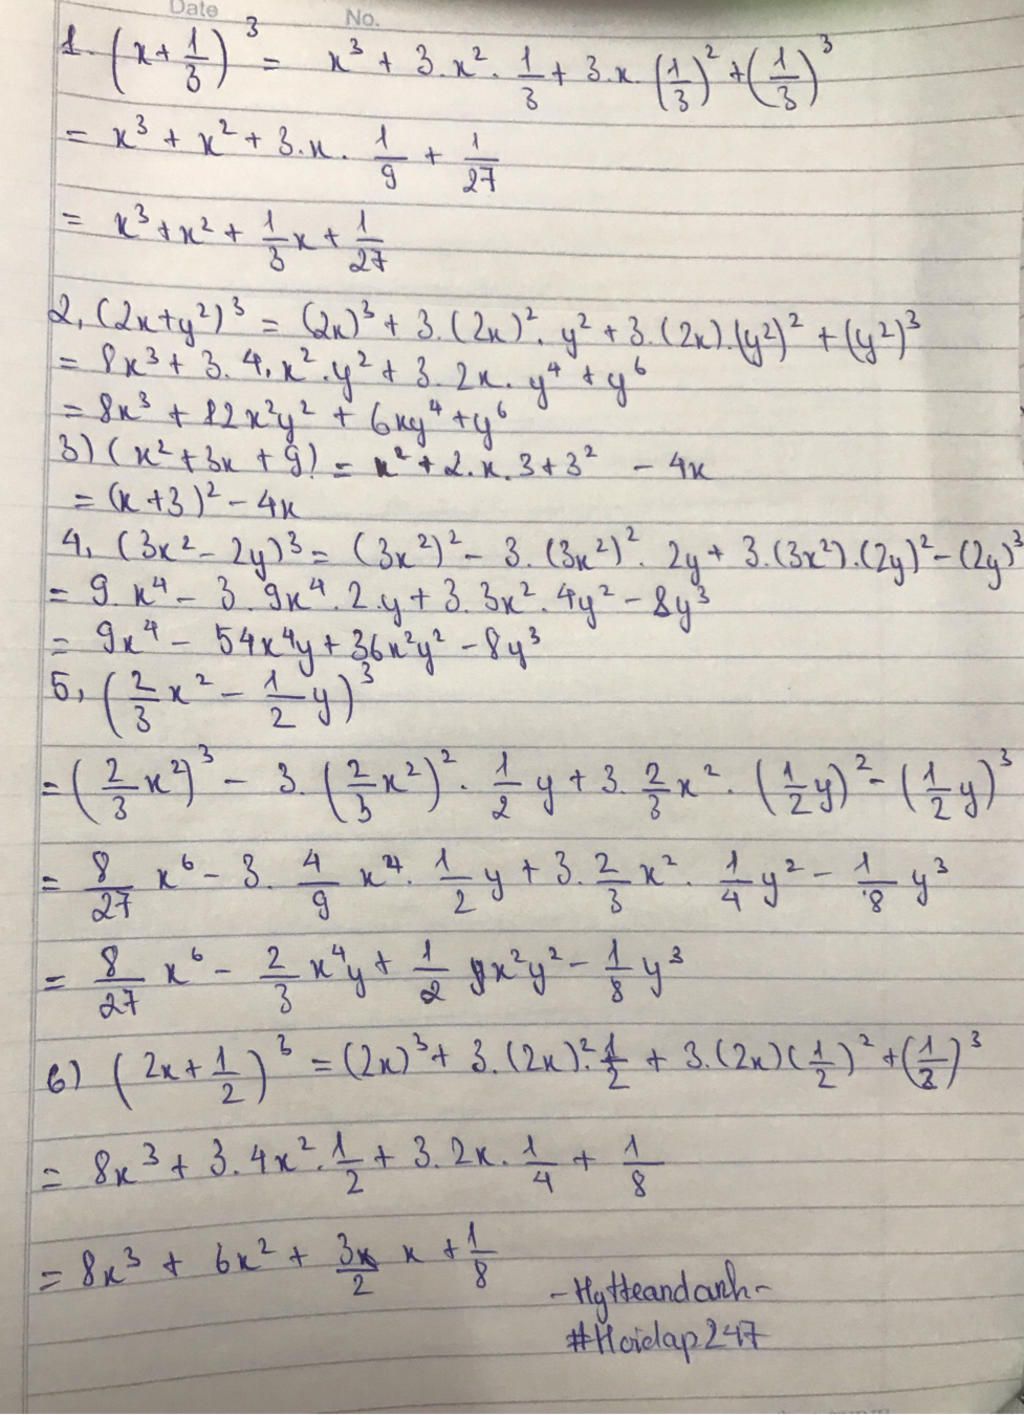 Date No.
1. (x + 1/3)³ = x³ + 3.x².1/3 + 3.x.(1/3)² + (1/3)³
= x³ + x² + 3.x.1/9 + 1/27
= x³ + x² + 1/3x + 1/27
2, (2x+y²)³ = (2x)³ + 3.(2x)².y² + 3.(2x).(y²)² + (y²)³
= 8x³ + 3.4.x².y² + 3.2x.y⁴ + y⁶
= 8x³ + 12x²y² + 6xy⁴ + y⁶
3) (x² + 3x + 9) = x² + 2.x.3 + 3² - 4x
= (x+3)² - 4x
4, (3x² - 2y)³ = (3x²)² - 3.(3x²)².2y + 3.(3x²).(2y)² - (2y)³
= 9.x⁴ - 3.9x⁴.2.y + 3.3x².4y² - 8y³
= 9x⁴ - 54x⁴y + 36x²y² - 8y³
5, (2/3x² - 1/2y)³
= (2/3x²)³ - 3.(2/3x²)².1/2y + 3.2/3x².(1/2y)² - (1/2y)³
= 8/27x⁶ - 3.4/9x⁴.1/2y + 3.2/3x².1/4y² - 1/8y³
= 8/27x⁶ - 2/3x⁴y + 1/2x²y² - 1/8y³
6) (2x + 1/2)³ = (2x)³ + 3.(2x)².1/2 + 3.(2x)(1/2)² + (1/2)³
= 8x³ + 3.4x².1/2 + 3.2x.1/4 + 1/8
= 8x³ + 6x² + 3/2x + 1/8
-HyHeandanh-
#Hoidap247